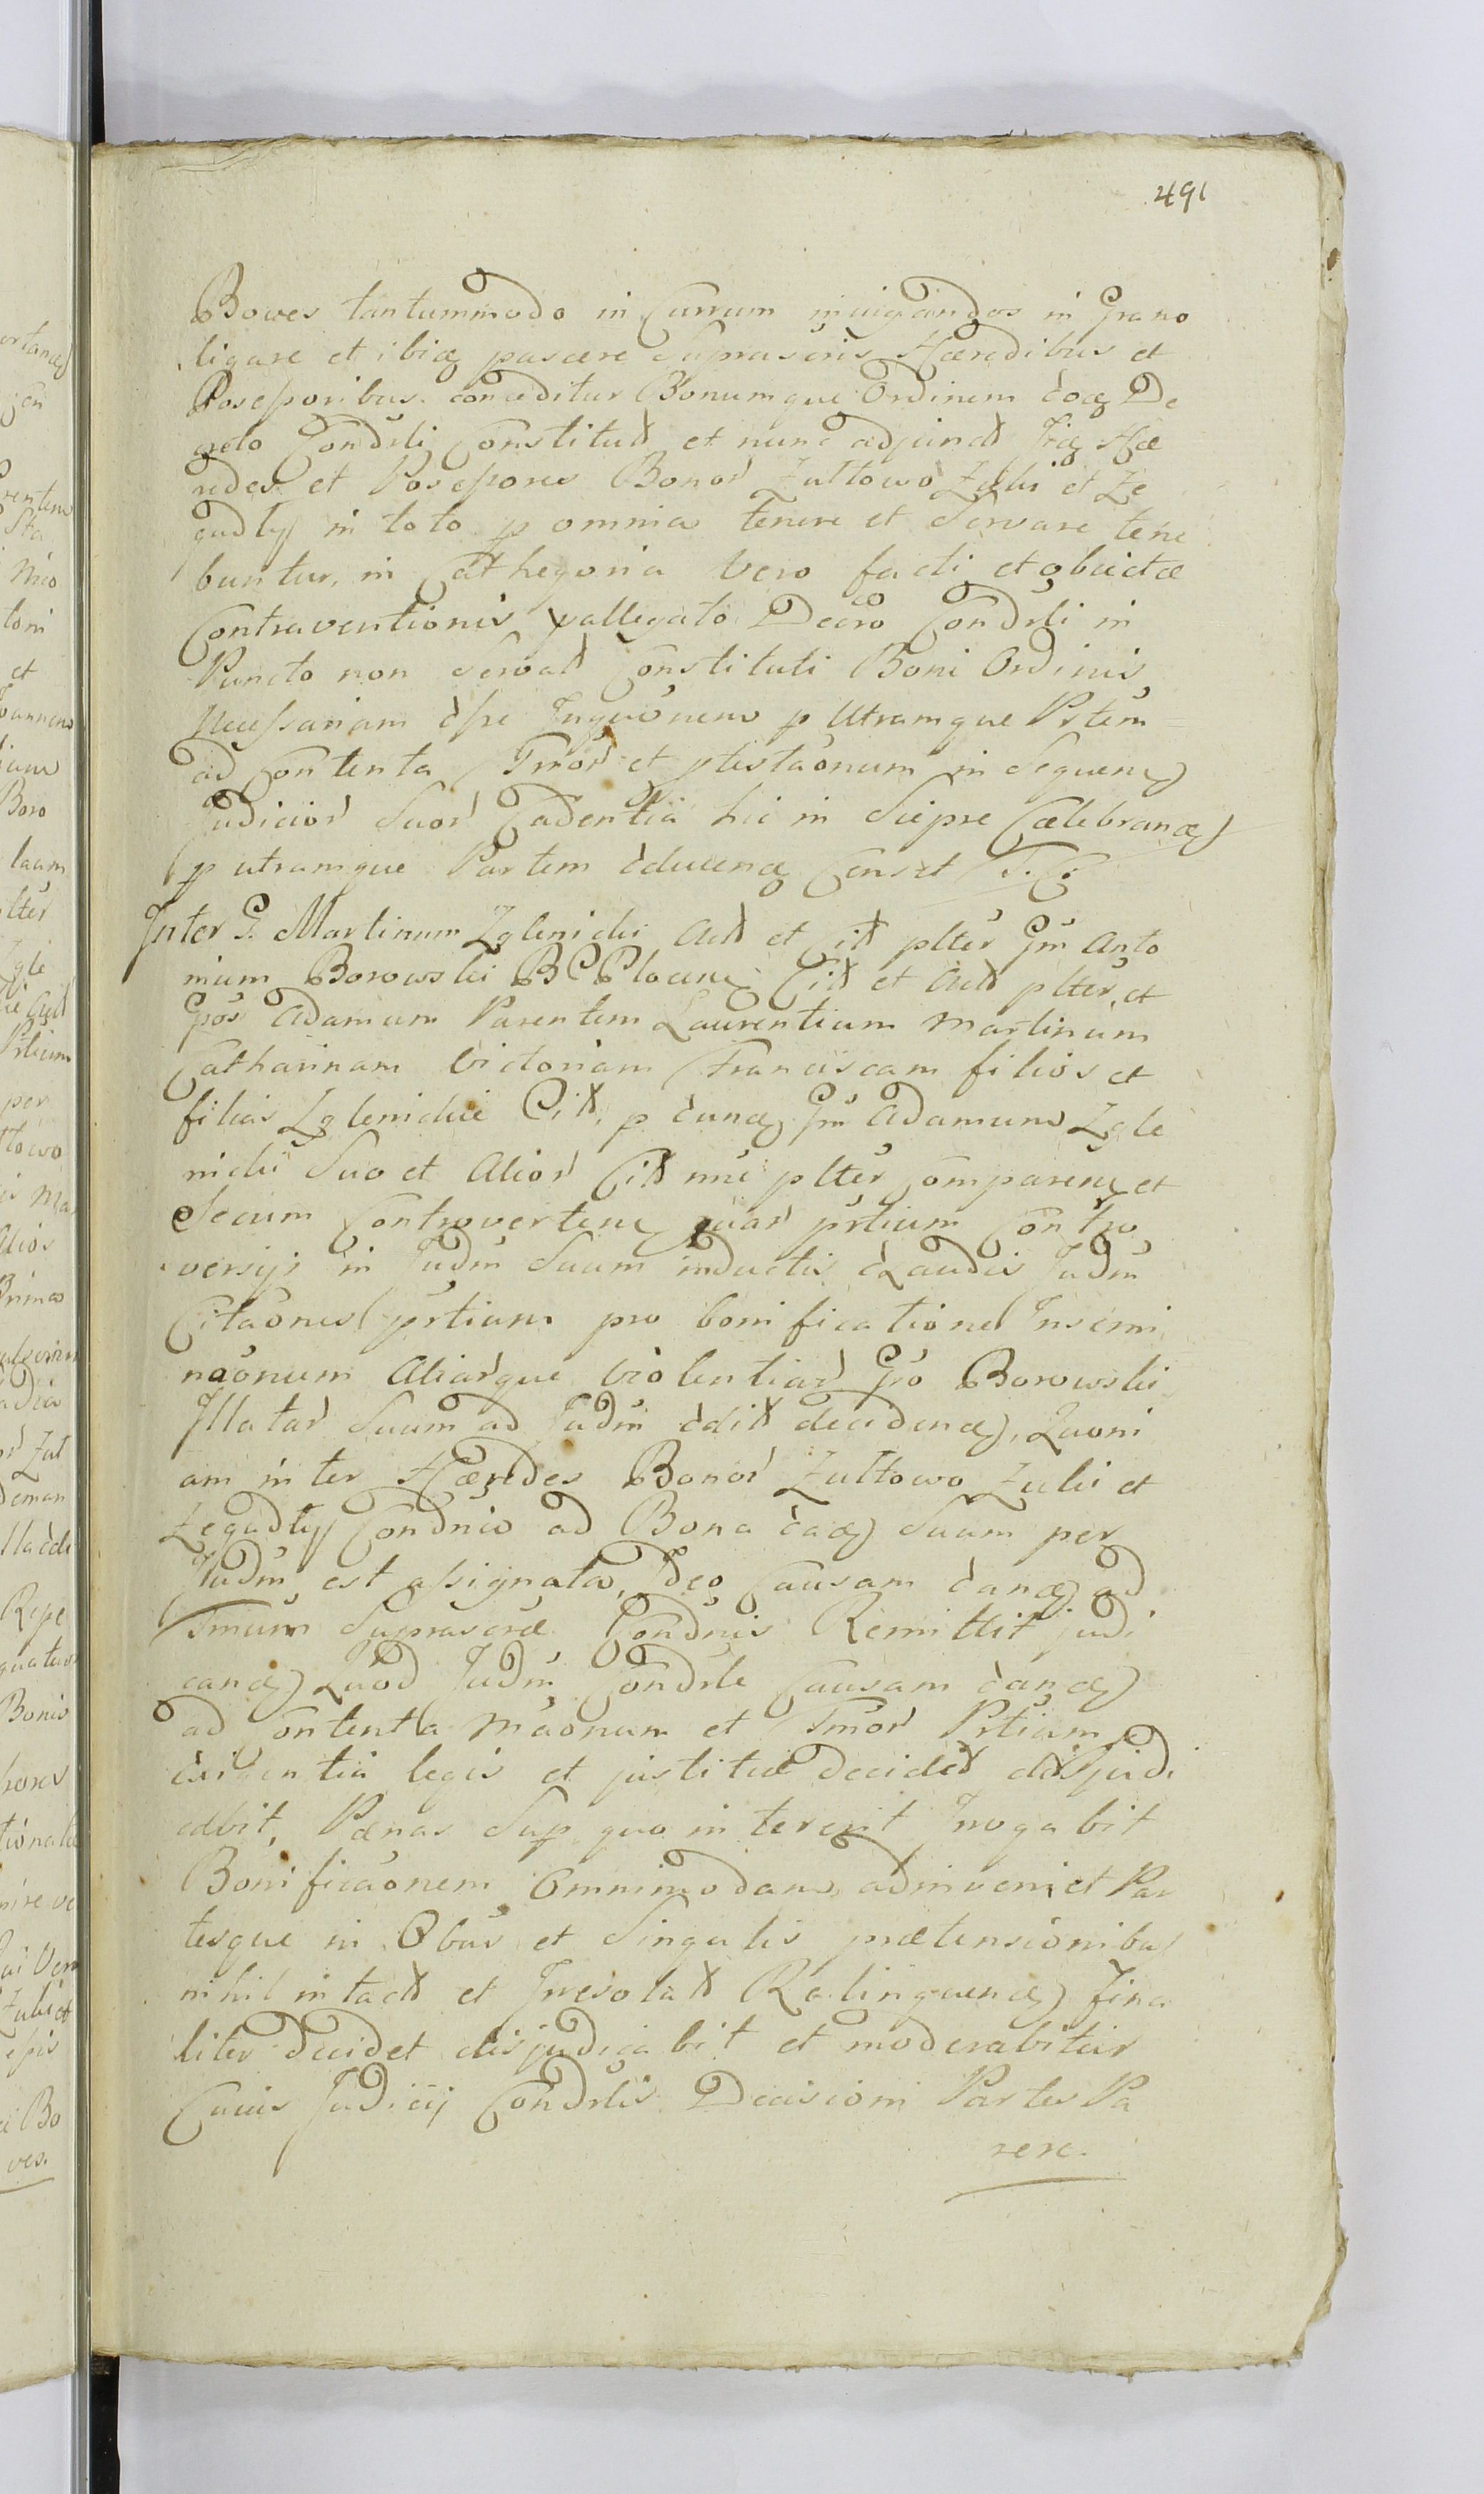 491
Boves tantummodo in Currum injugandos in Grano
ligare et ibiq pascere Suprascris Hæredibus et
Possessoribus conceditur Bonumque Ordinem eoq De
creto Condrli Constitut et nunc adjunct Iiq Hæ
redes et Possessores Bonor Zułtowo Zglii et Ze
gudty in toto p omnia tenere et Servare tene
buntur, in Cathegoria Vero facti et objectæ
Contraventionis pallegato Decro Condrli in
Puncto non Servat Constituti Boni Ordinis
Necessariam esse Inquonem p Utramque Ptem
ad Contenta Tmor et ptestaonum in Sequen
Judicior Suor Cadentia hic in Siepre Celebranq
p utramque Partem educenq Censet T. C.
Inter G. Martinum Zglenicki Act et Cit plter Gm Anto
nium Borowski B C Plocen Cit et Act plter, et
Gos Adamum Parentem Laurentium Martinum
Catharinam Victoriam Franciscam filios et
filias Zglenickie Cit, p eunq Gm Adamum Zgle
nicki Suo et Alior Cit nne plter Comparen et
Secum Controverten quar prtium Contro
versijs in Judm Suum inductis exaudis Judm
Citaones prtium pro bonificatione Insemi
naonum Aliarque violentiar Gro Borowski
Illatar Suum ad Judm edit decidenq, Quoni
am inter Hæredes Bonor Zułtowo Zulii et
Zegudty Condnio ad Bona eaq Suum per
Judm est assignata, Ideo Causam eanq ad
Tmum Suprascræ Condnis Remittit judi
canq Quod Judm Condrle Causam eanq
ad Contenta Maonum et Tmor Prtium
exigentia legis et justitiæ decidet disjudi
cabit, Pænas Sup quo intererit Irrogabit
Bonificaonem Omnimodam adinveniet Par
tesque in Obus et Singulis prætensionibus
nihil intact et Iresolut Relinquenq fina
liter decidet disjudicabit et moderabitur
Cuius Judicij Condrlis Decisioni Partes Pa
rere.